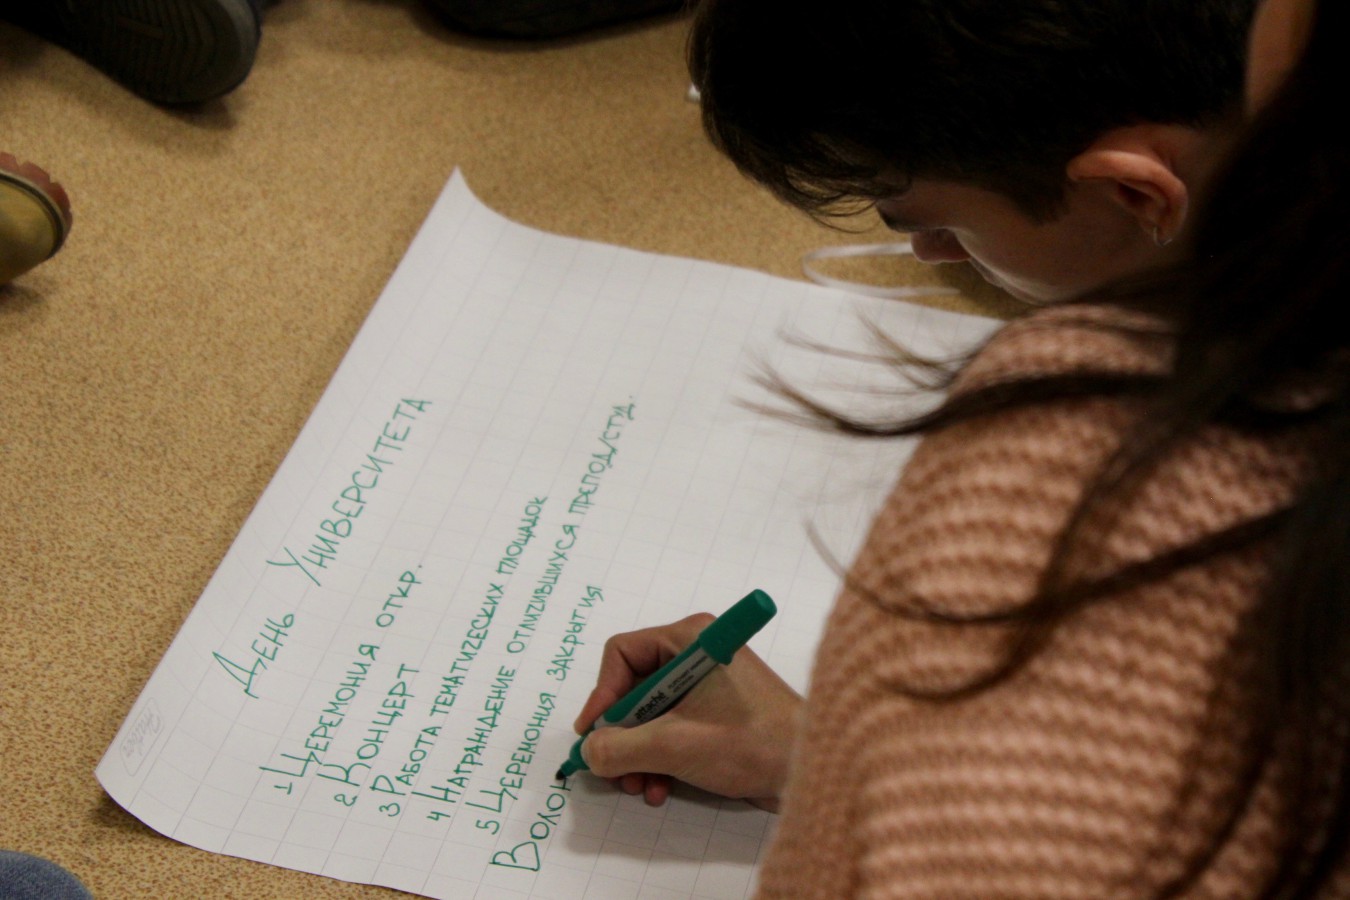 День Университета
1 Церемония откр.
2 Концерт
3 Работа тематических площадок
4 Награждение отличившихся препод/студ.
5 Церемония закрытия
Волон
attaché